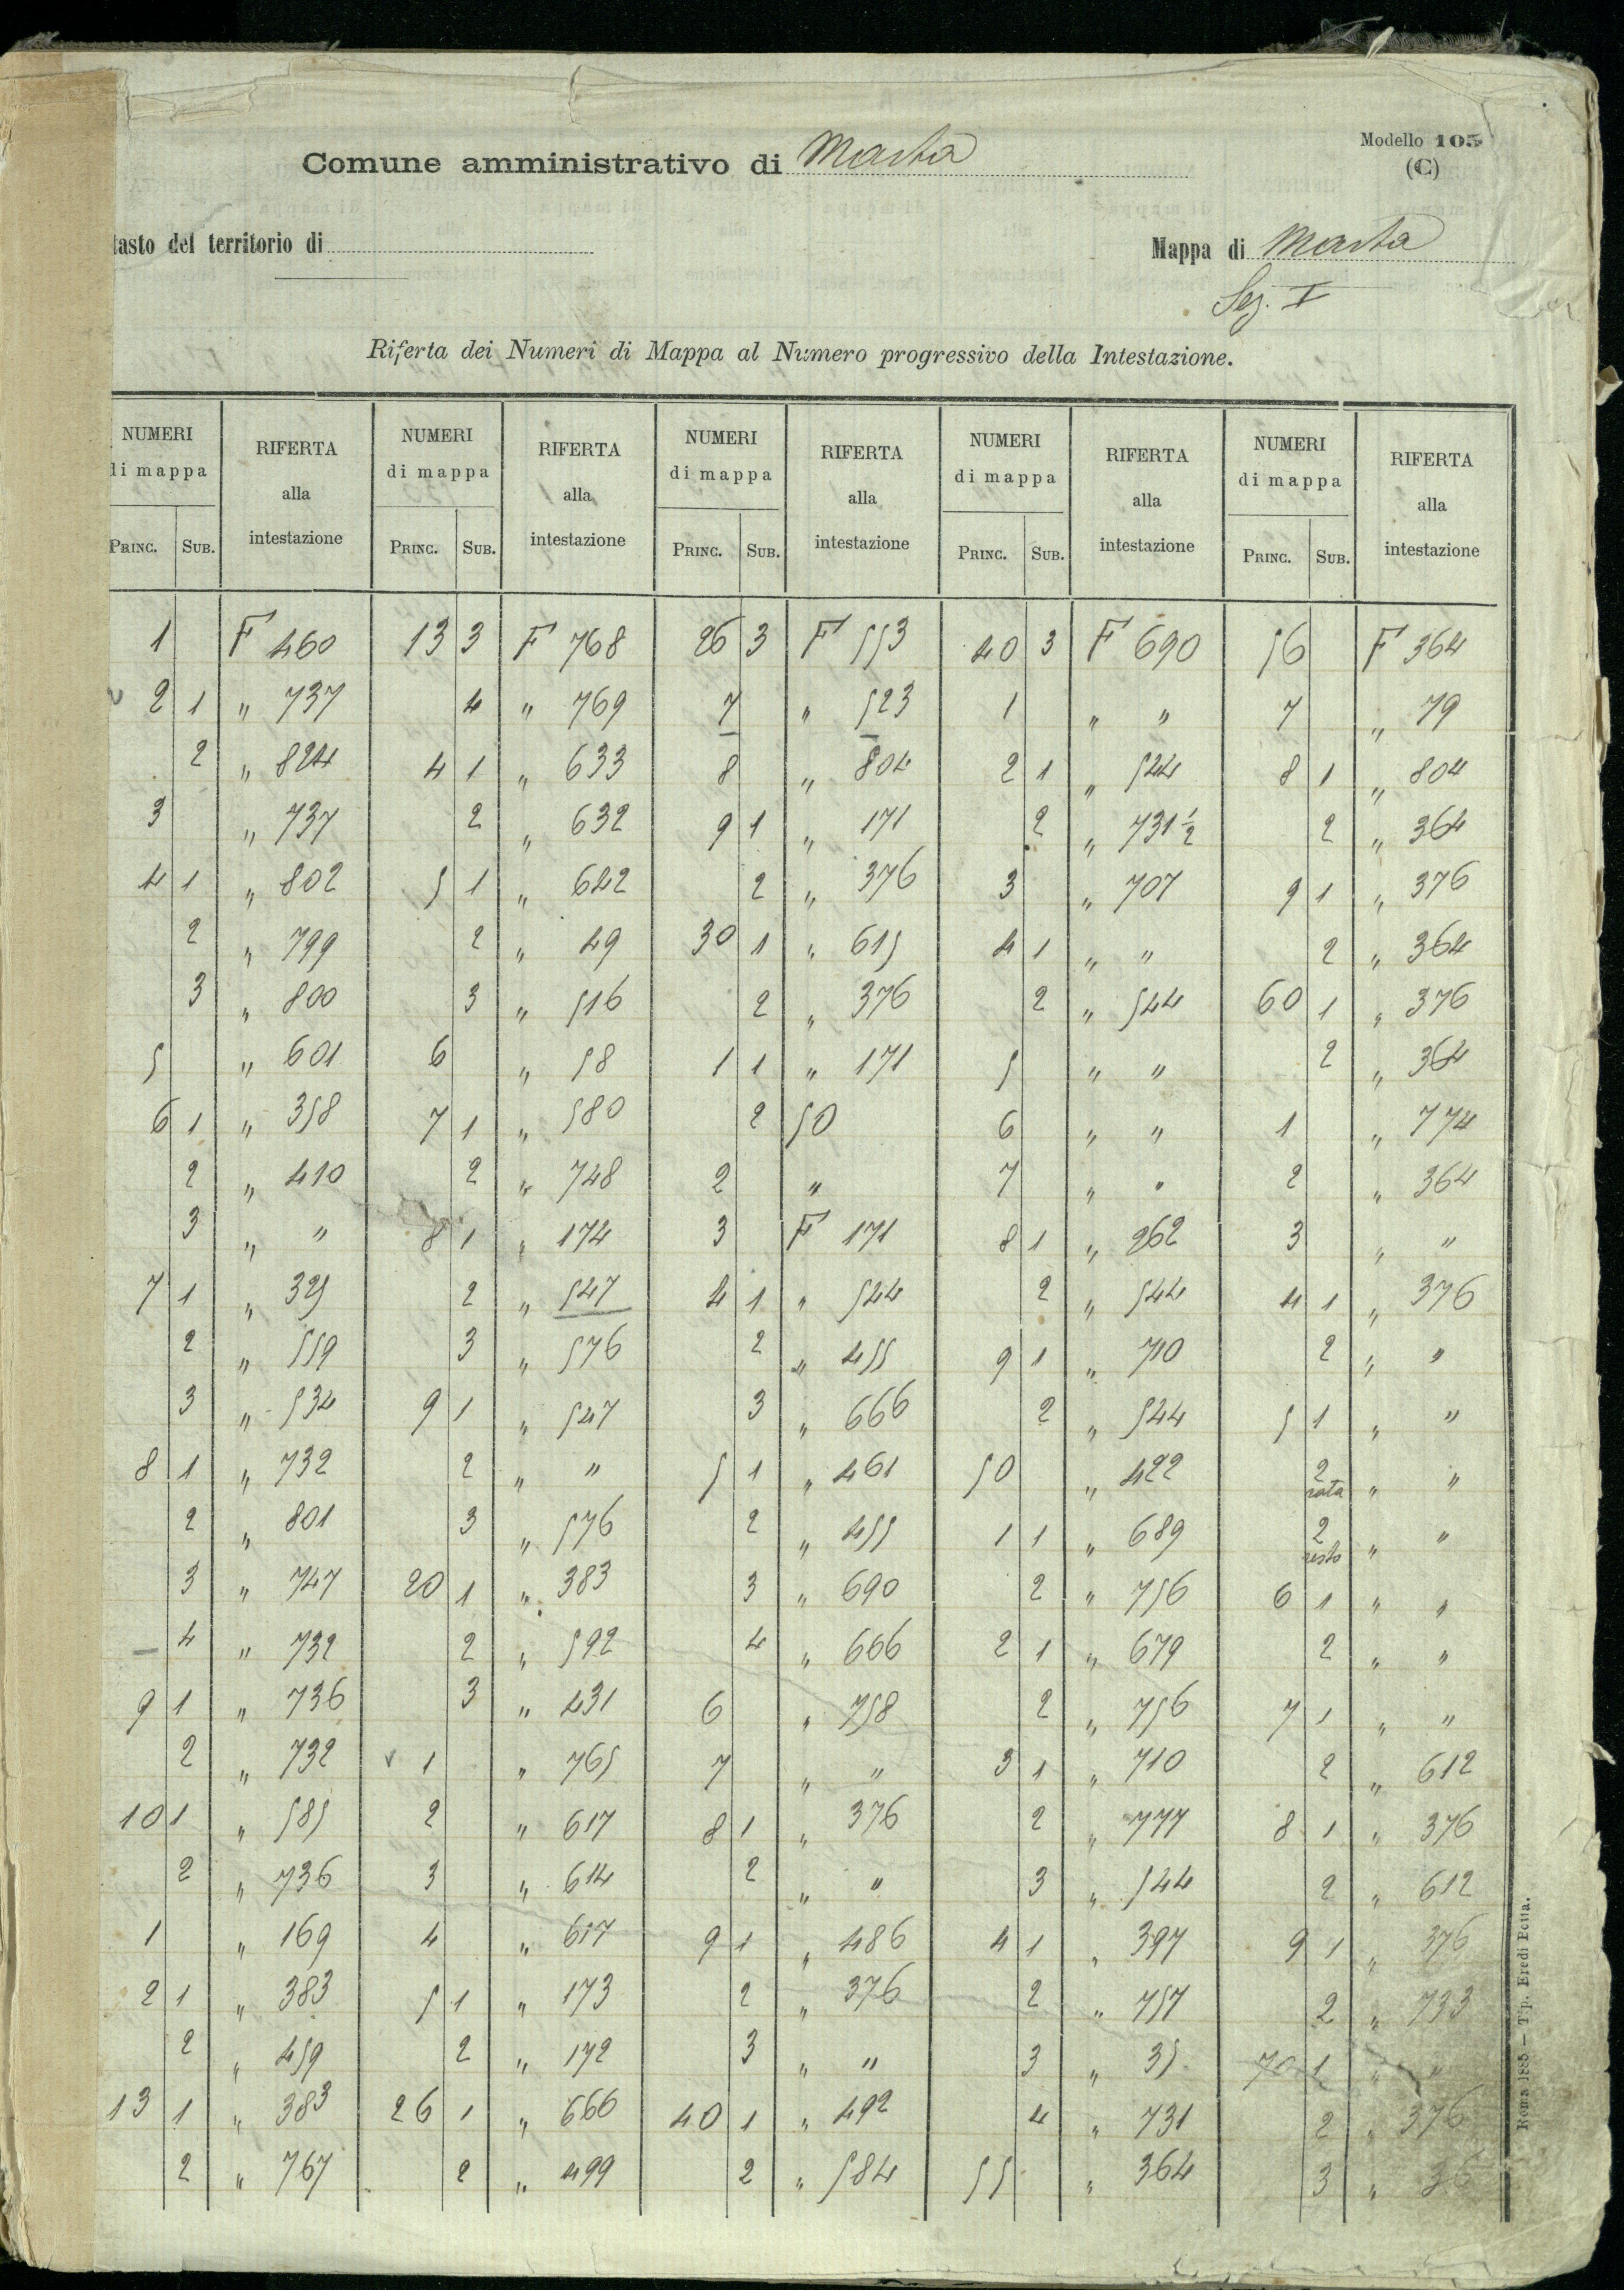 Modello 105
Comune amministrativo di Marta
(C)
tasto del territorio di
Mappa di Marta
Sez. I
Riferta dei Numeri di Mappa al Numero progressivo della Intestazione.
NUMERI di mappa RIFERTA alla intestazione NUMERI di mappa RIFERTA alla intestazione NUMERI di mappa RIFERTA alla intestazione NUMERI di mappa RIFERTA alla intestazione NUMERI di mappa RIFERTA alla intestazione
PRINC. SUB. PRINC. SUB. PRINC. SUB. PRINC. SUB. PRINC. SUB.
1 F 460 13 3 F 768 26 3 F 553 40 3 F 690 56 F 364
2 1 " 737 4 " 769 7 " 523 1 " " 7 " 79
2 " 824 4 1 " 633 8 " 804 2 1 " 544 8 1 " 804
3 " 737 2 " 632 9 1 " 171 2 " 731 1/2 2 " 364
4 1 " 802 5 1 " 642 2 " 376 3 " 707 9 1 " 376
2 " 799 2 " 49 30 1 " 615 4 1 " " 2 " 364
3 " 800 3 " 516 2 " 376 2 " 544 60 1 " 376
5 " 601 6 " 58 1 1 " 171 5 " " 2 " 364
6 1 " 358 7 1 " 580 2 50 6 " " 1 " 774
2 " 410 2 " 748 2 " 7 " " 2 " 364
3 " " 8 1 " 174 3 F 171 8 1 " 262 3 " "
7 1 " 325 2 " 547 4 1 " 544 2 " 544 4 1 " 376
2 " 559 3 " 576 2 " 455 9 1 " 710 2 " "
3 " 534 9 1 " 547 3 " 666 2 " 544 5 1 " "
8 1 " 732 2 " " 5 1 " 461 50 " 422 2 rata " "
2 " 801 3 " 576 2 " 455 1 1 " 689 2 resto " "
3 " 747 20 1 " 383 3 " 690 2 " 756 6 1 " "
4 " 732 2 " 592 4 " 666 2 1 " 679 2 " "
9 1 " 736 3 " 431 6 " 758 2 " 756 7 1 " "
2 " 732 v 1 " 765 7 " " 3 1 " 710 2 " 612
10 1 " 585 2 " 617 8 1 " 376 2 " 777 8 1 " 376
2 " 736 3 " 614 2 " " 3 " 544 2 " 612
1 " 169 4 " 617 9 1 " 486 4 1 " 397 9 1 " 376
2 1 " 383 5 1 " 173 2 " 376 2 " 757 2 " 733
2 " 459 2 " 172 3 " " 3 " 35 70 1 " "
13 1 " 383 26 1 " 666 40 1 " 492 4 " 731 2 " 376
2 " 767 2 " 499 2 " 584 55 " 364 3 " 36
Roma 1885 — Tip. Eredi Botta.